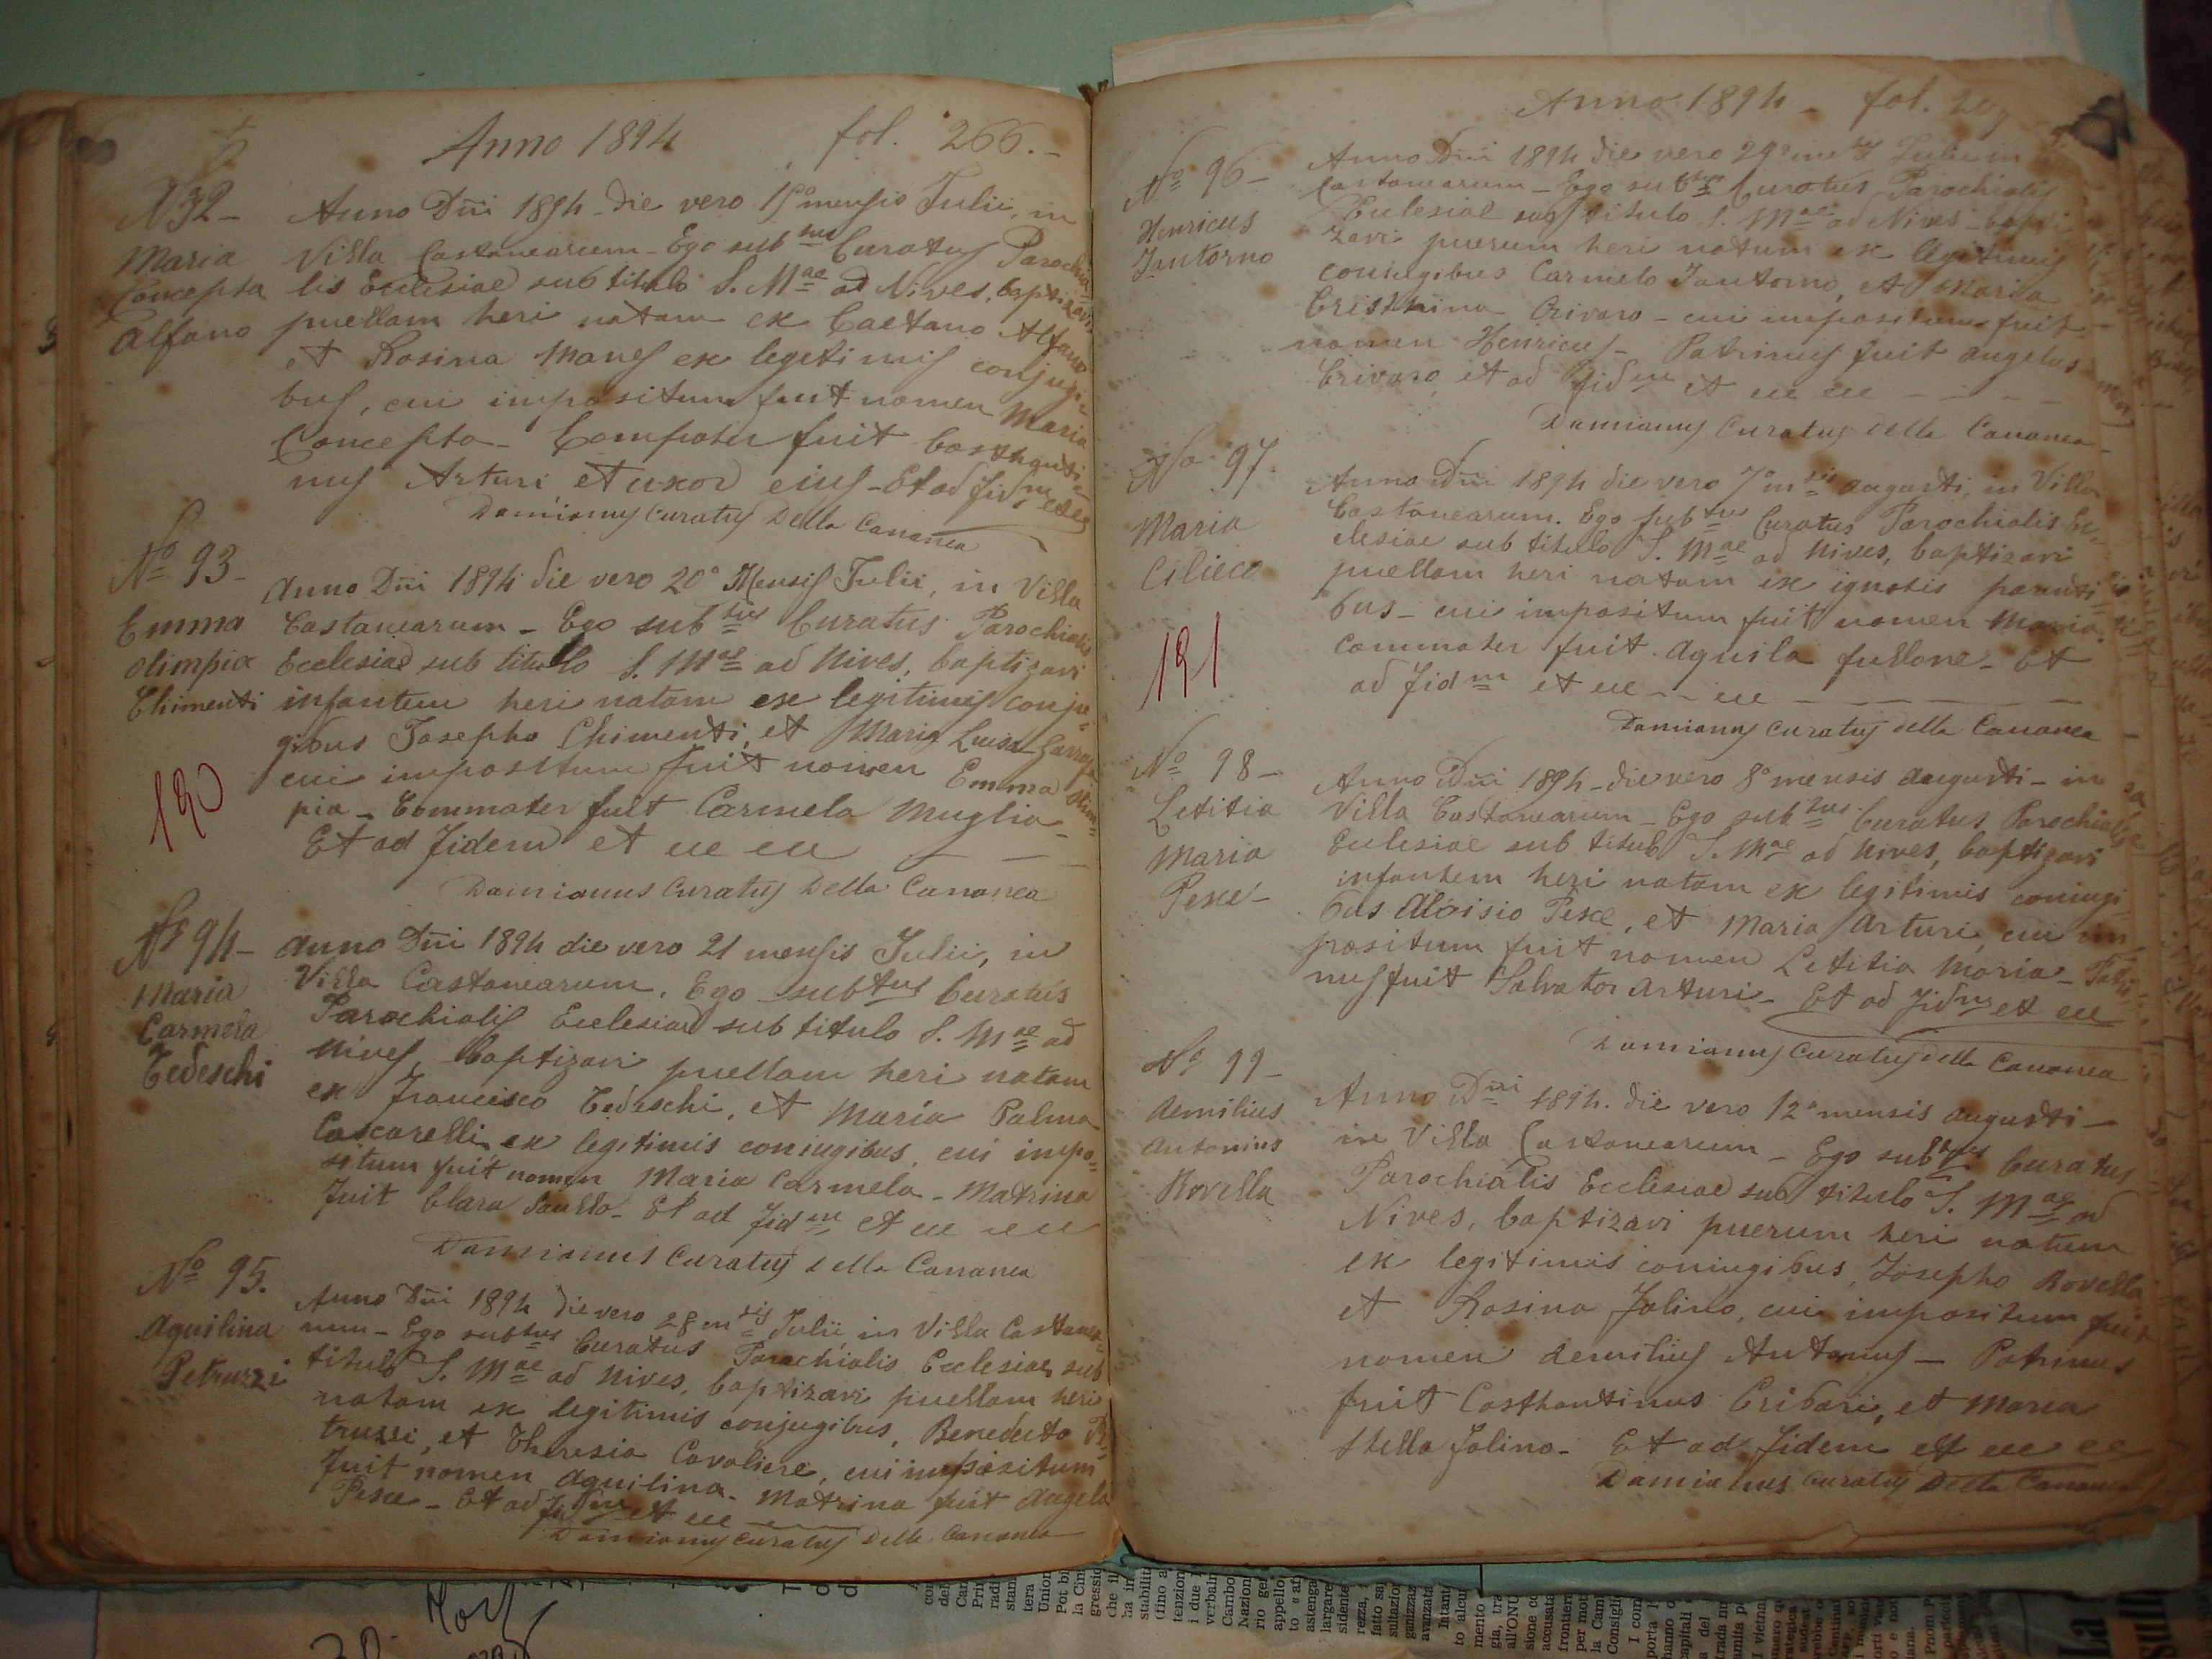 Anno 1894 fol. 266.-
N 92-
Maria
Concepta
Alfano
Anno Dñi 1894 - die vero 15° mensis Julii, in
Villa Castanearum - Ego subtus Curatus Parochia-
lis Ecclesiae sub titulo S. Mae ad Nives, baptizavi
puellam heri natam ex Caetano Alfano
et Rosina Manes ex legitimis conjugi-
bus, cui impositum fuit nomen Maria
Concepta - Compater fuit Costhanti-
nus Arturi et uxor eius - Et ad fidm
Damianus Curatus Della Cananea
No 93-
Emma
Olimpia
Chimenti
190
Anno Dñi 1894 die vero 20° Mensis Julii, in Villa
Castanearum - Ego subtus Curatus Parochialis
Ecclesiae sub titulo S. Mae ad Nives, baptizavi
infantem heri natam ex legitimis conju-
gibus Josepho Chimenti, et Maria Luisa
cui impositum fuit nomen Emma Olim-
pia - Commater fuit Carmela Muglia -
Et ad fidem et
Damianus Curatus Della Cananea
No 94-
Maria
Carmela
Tedeschi
Anno Dñi 1894 die vero 21 mensis Julii, in
Villa Castanearum. Ego subtus Curatus
Parochialis Ecclesiae sub titulo S. Mae ad
Nives, baptizavi puellam heri natam
ex Francisco Tedeschi, et Maria Palma
Cascarelli ex legitimis coniugibus, cui impo-
situm fuit nomen Maria Carmela - Matrina
fuit Clara Saullo - Et ad fidm et
Damianus Curatus della Cananea
No 95.
Aquilina
Petruzzi
Anno Dñi 1894 die vero 28 msis Julii, in Villa Castanea-
rum - Ego subtus Curatus Parochialis Ecclesiae sub
titulo S. Mae ad Nives, baptizavi puellam heri
natam ex legitimis conjugibus, Benedicto Pe-
truzzi, et Theresia Cavaliere, cui impositum
fuit nomen Aquilina - Matrina fuit Angela
Pesce - Et ad fidm et
Damianus Curatus della Cananea
Anno 1894 - fol. 267
No 96-
Henricus
Iantorno
Anno Dñi 1894 die vero 29° Julii in
Castanearum - Ego subtus Curatus Parochialis
Ecclesiae sub titulo S. Mae ad Nives - bapti
zavi puerum heri natum ex legitimis
coniugibus Carmelo Iantorno, et Maria
Cristhina Crivaro - cui impositum fuit
nomen Henricus - Patrinus fuit Angelus
Crivaro, et ad fidm et
Damianus Curatus della Cananea
No 97.
Maria
Cilieco
191
Anno Dñi 1894 die vero 7° msis Augusti, in Villa
Castanearum. Ego subtus Curatus Parochialis Ec-
clesiae sub titulo S. Mae ad Nives, baptizavi
puellam heri natam ex ignotis parenti-
bus - cui impositum fuit nomen Maria.
Commater fuit Aquila fullone - Et
ad fidm et
Damianus Curatus della Cananea
No 98-
Letitia
Maria
Pesce-
Anno Dñi 1894 - die vero 8° mensis Augusti - in
Villa Castanearum - Ego subtus Curatus Parochialis
Ecclesiae sub titulo S. Mae ad Nives, baptizavi
infantem heri natam ex legitimis coniugi
bus Aloisio Pesce, et Maria Arturi, cui im
positum fuit nomen Letitia Maria - Patri
nus fuit Salvator Arturi - Et ad fidm et
Damianus Curatus della Cananea
No 99-
Aemilius
Antonius
Rovella
Anno Dñi 1894. die vero 12° mensis Augusti -
in Villa Castanearum - Ego subtus Curatus
Parochialis Ecclesiae sub titulo S. Mae ad
Nives, baptizavi puerum heri natum
ex legitimis coniugibus, Josepho Rovella
et Rosina Folino, cui impositum fuit
nomen Aemilius Antonius - Patrinus
fuit Costhantinus Cribari, et Maria
Stella Folino - Et ad fidem et
Damianus Curatus Della Cananea